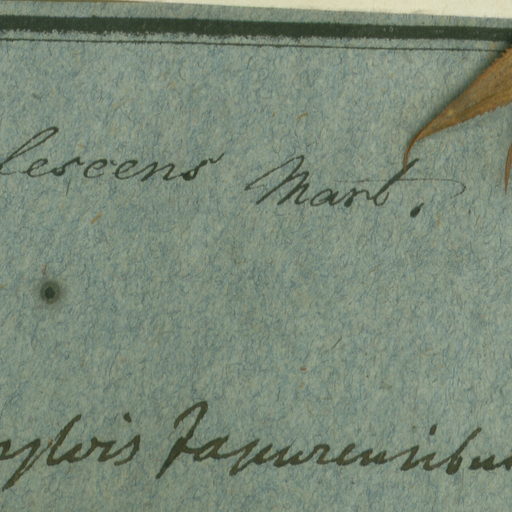 lescens Mart.
sylvis Japurensibus